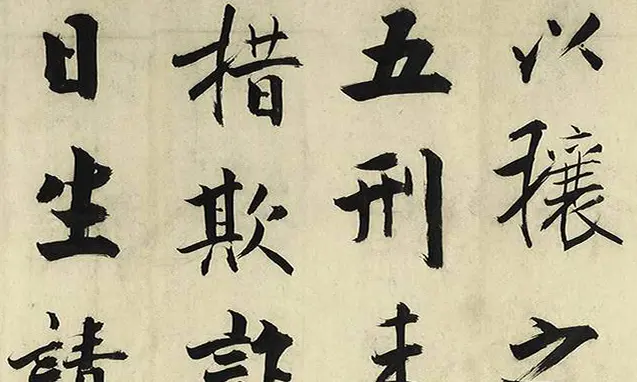 以攘之
五刑未
措欺詐
日生請